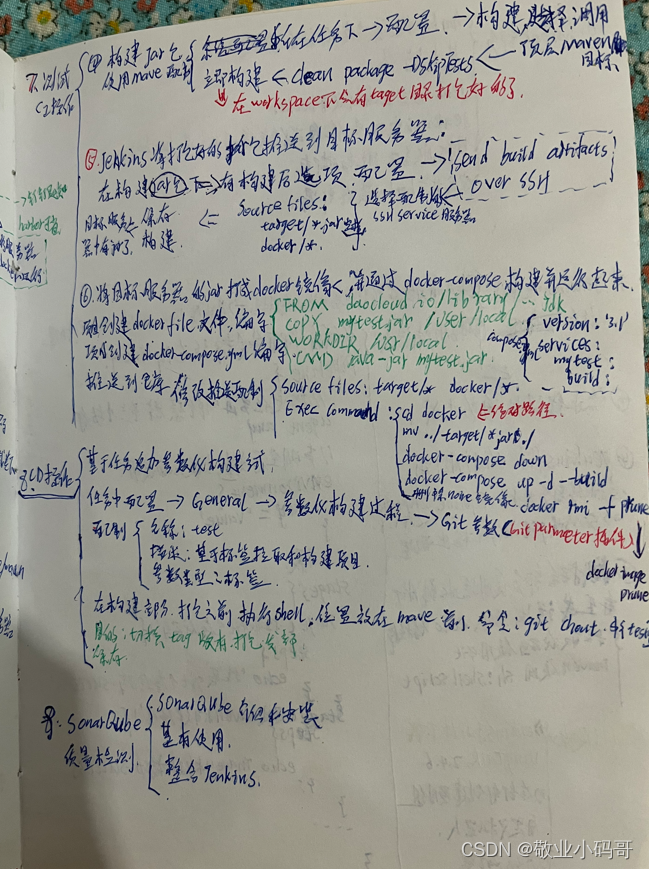 7. 测试
CI操作
① 构建jar包
使用mave
在任务下→配置→构建,选择:调用
顶层maven
目标
立即构建 ← clean package -DskipTests ←
在workspace下会有taget目录打包好的了
Jenkins 将打包好的 推送到目标服务器:
在构建 jar包 下 有构建后选项 配置 → Send build artifacts
over SSH
选择配置的
SSH service服务器
Source files:
target/*.jar
docker/*.
⇐
保存
构建
目标服务器
harbor
将目标服务器的jar打成docker镜像,并通过docker-compose构建并运行起来.
项目创建dockerfile文件,编写
FROM daocloud.io/library/...jdk
COPY mytest.jar /user/local
WORKDIR /usr/local
CMD java-jar mytest.jar.
项目创建docker-compose.yml编写
version: '3.1'
services:
mytest:
build:
推送到仓库 修改推送配制
Source files: target/* docker/*.
Exec command: cd docker ←绝对路径
mv ../target/*.jar ./
docker-compose down
docker-compose up -d --build
删除none镜像 docker rmi -f
docker image
prune
8. CD操作
基于任务添加参数化构建方式
任务中配置 → General → 参数化构建过程 → Git参数(Git parmeter插件)
配制
名称: test
描述: 基于标签拉取和构建项目
参数类型: 标签
在构建部分,打包之前执行shell,位置放在mave前, 命令: git chout
目的: 切换tag 版本打包
保存
SonarQube
质量检测.
SonarQube 介绍和安装
基本使用.
整合Jenkins.
CSDN @敬业小码哥